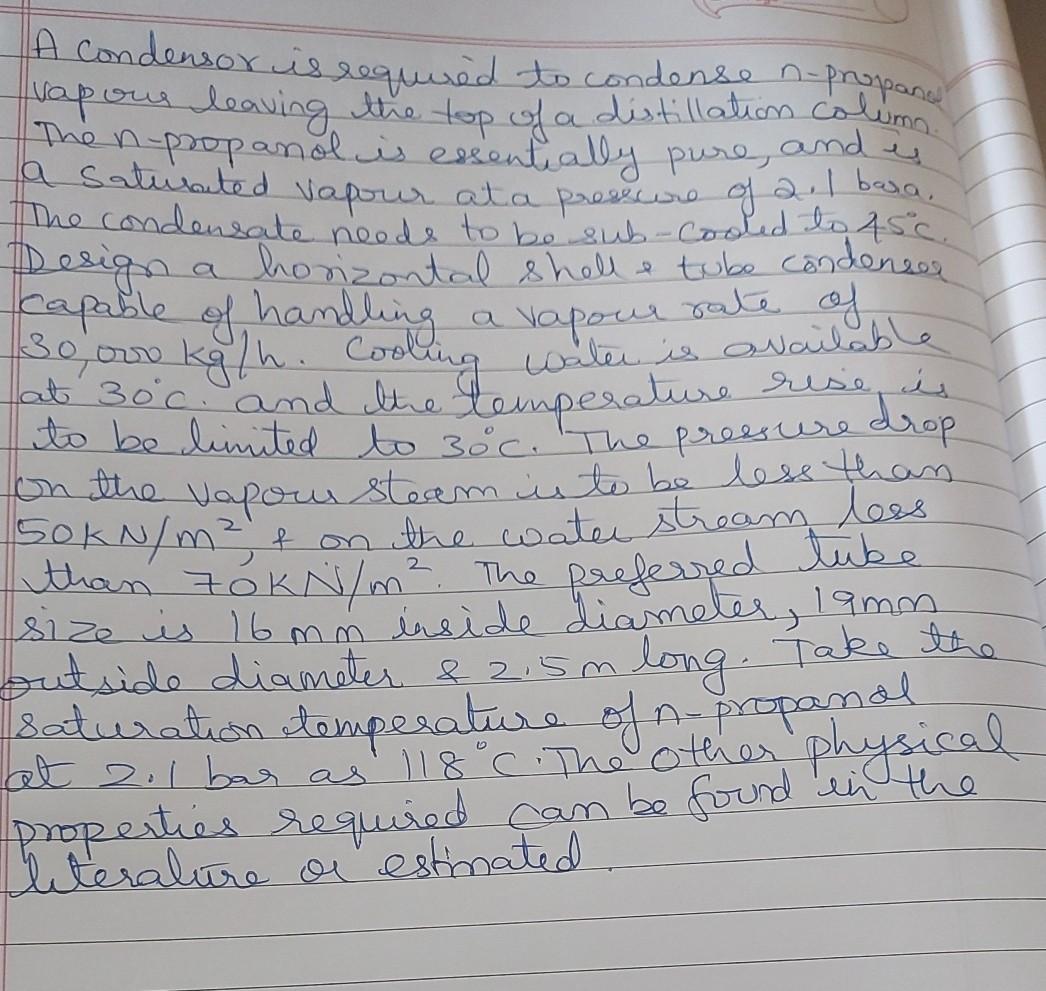 A condensor is required to condense n-propanol
vapour leaving the top of a distillation column.
The n-propanol is essentially pure, and is
a saturated vapour at a pressure of 2.1 bara.
The condensate needs to be sub-cooled to 45°C.
Design a horizontal shell & tube condenser
capable of handling a vapour rate of
30,000 kg/h. Cooling water is available
at 30°C. and the temperature rise is
to be limited to 30°C. The pressure drop
on the vapour steam is to be less than
50KN/m², & on the water stream less
than 70KN/m². The preferred tube
size is 16 mm inside diameter, 19mm
outside diameter & 2.5m long. Take the
saturation temperature of n-propanol
at 2.1 bar as 118°C. The other physical
properties required can be found in the
literature or estimated.